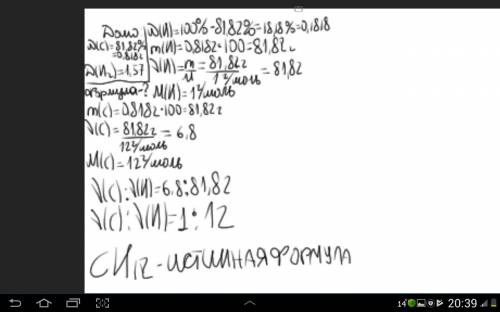 Дано
D(C)=81,82%
=0,8182
D(H₂)=1,57
формула-?
D(H)=100%-81,82%=18,18%=0,1818
m(H)=0,8182·100=81,82г
ν(H)=m/M=81,82г/1г/моль=81,82
M(H)=1г/моль
m(C)=0,8182·100=81,82г
ν(C)=81,82г/12г/моль=6,8
M(C)=12г/моль
ν(C):ν(H)=6,8:81,82
ν(C):ν(H)=1:12
CH₁₂-ИСТИННАЯ ФОРМУЛА
14
20:39